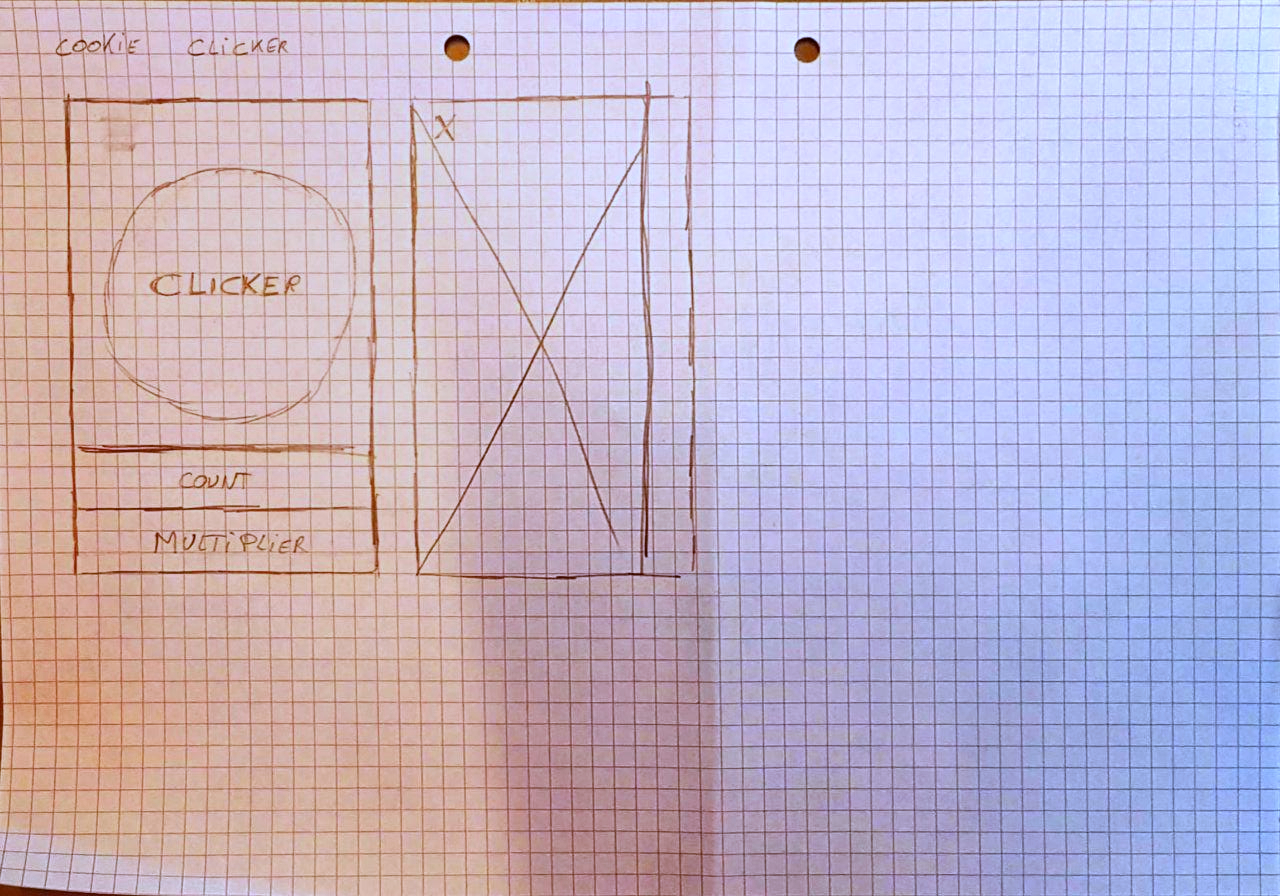 COOKIE CLICKER
CLICKER
COUNT
MULTIPLIER
X